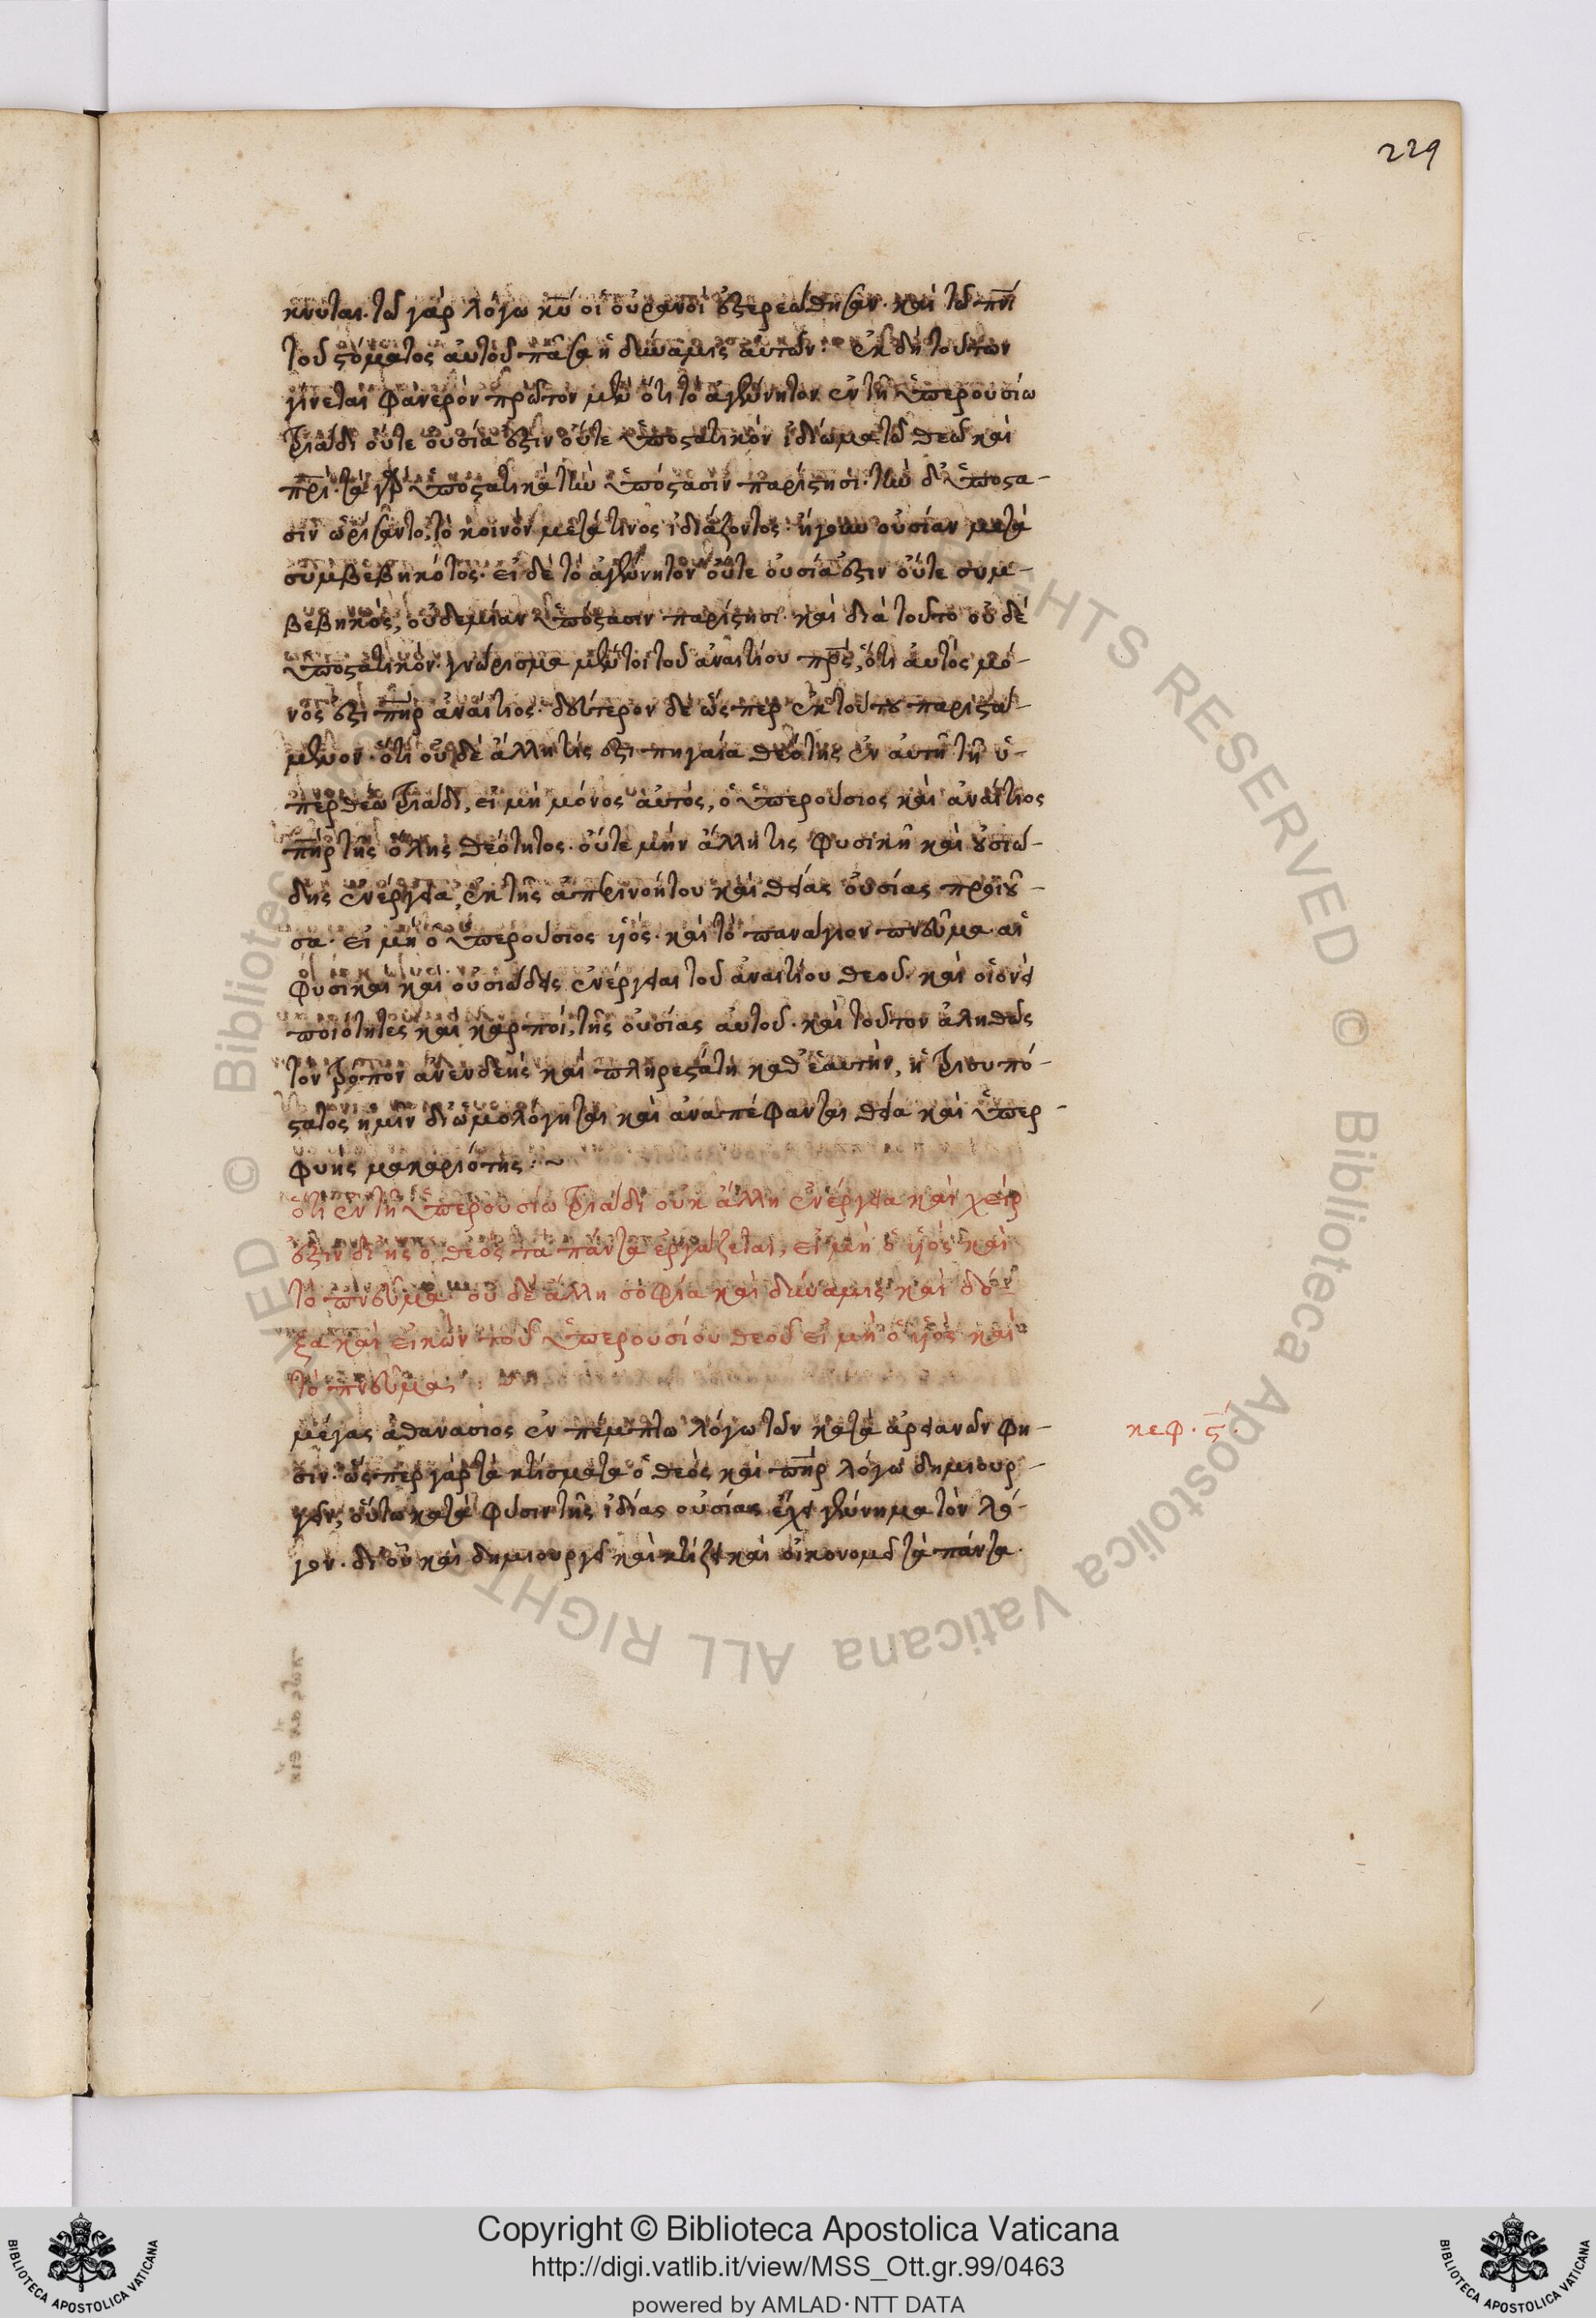 229
κνυται. τῶ γὰρ λόγω κ̅υ̅ οἱ οὐρανοὶ ἐστερεώθησαν. καὶ τῶ π̅ν̅ι̅
τοῦ στόματος αὐτοῦ πᾶσα ἡ δύναμις αὐτῶν: ἐκ δὴ τούτων
γίνεται φανερὸν πρῶτον μὲν ὅτι τὸ ἀγέννητον ἐν τῆ ὑπερουσίω
τριάδι οὔτε οὐσία ἐστὶν οὔτε ὑποστατικὸν ἰδίωμα τῶ θεῶ καὶ
π̅ρ̅ι̅. τὰ γὰρ ὑποστατικὰ τὴν ὑπόστασιν παρίστησι. τὴν δ' ὑπόστα-
σιν ὡρίσαντο, τὸ κοινὸν μετά τινος ἰδιάζοντος. ἤγουν οὐσίαν μετὰ
συμβεβηκότος. εἰ δὲ τὸ ἀγέννητον οὔτε οὐσία ἐστὶν οὔτε συμ-
βεβηκὸς, οὐδεμίαν ὑπόστασιν παρίστησι. καὶ διὰ τοῦτο οὐδὲ
ὑποστατικόν. γνώρισμα μέντοι τοῦ ἀναιτίου π̅ρ̅ς̅, ὅτι αὐτὸς μό-
νος ἐστὶ π̅η̅ρ̅ ἀναίτιος. δεύτερον δὲ ὥσπερ ἐκ τούτου παριστά-
μενον. ὅτι οὐδὲ ἄλλη τίς ἐστι πηγαία θεότης ἐν αὐτῆ τῆ ὑ-
περθέω τριάδι, εἰ μὴ μόνος αὐτὸς, ὁ ὑπερούσιος καὶ ἀναίτιος
π̅η̅ρ̅ τῆς ὅλης θεότητος. οὔτε μὴν ἄλλη τις φυσικὴ καὶ οὐσιώ-
δης ἐνέργεια, ἐκ τῆς ἀπερινοήτου καὶ θείας οὐσίας προϊοῦ-
σα. εἰ μὴ ὁ ὑπερούσιος υἱός. καὶ τὸ πανάγιον πνεῦμα. αἱ
φυσικαὶ καὶ οὐσιώδεις ἐνέργειαι τοῦ ἀναιτίου θεοῦ. καὶ οἱονεὶ
ποιότητες καὶ καρποὶ, τῆς οὐσίας αὐτοῦ. καὶ τοῦτον ἀληθῶς
τὸν τρόπον ἀνενδεὴς καὶ πληρεστάτη καθ' ἑαυτὴν, ἡ τρισυπό-
στατος ἡμῖν διωμολόγηται καὶ ἀναπέφανται θεία καὶ ὑπερ-
φυὴς μακαριότης: ~
ὅτι ἐν τῆ ὑπερουσίω τριάδι οὐκ ἄλλη ἐνέργεια καὶ χεὶρ
ἐστὶν δι' ἧς ὁ θεὸς τὰ πάντα ἐργάζεται, εἰ μὴ ὁ υἱὸς καὶ
τὸ πνεῦμα. οὐδὲ ἄλλη σοφία καὶ δύναμις καὶ δό-
ξα καὶ εἰκὼν τοῦ ὑπερουσίου θεοῦ εἰ μὴ ὁ υἱὸς καὶ
τὸ πνεῦμα:
μέγας ἀθανάσιος ἐν πέμπτω λόγω τῶν κατὰ ἀρειανῶν φη-
κεφ. ϛ̅.
σιν. ὥσπερ γὰρ τὰ κτίσματα ὁ θεὸς καὶ π̅η̅ρ̅ λόγω δημιουρ-
γεῖ, οὕτω κατὰ φύσιν τῆς ἰδίας οὐσίας ἔχει γέννημα τὸν λό-
γον. δι' οὗ καὶ δημιουργεῖ καὶ κτίζει καὶ οἰκονομεῖ τὰ πάντα.
Copyright © Biblioteca Apostolica Vaticana
http://digi.vatlib.it/view/MSS_Ott.gr.99/0463
powered by AMLAD·NTT DATA